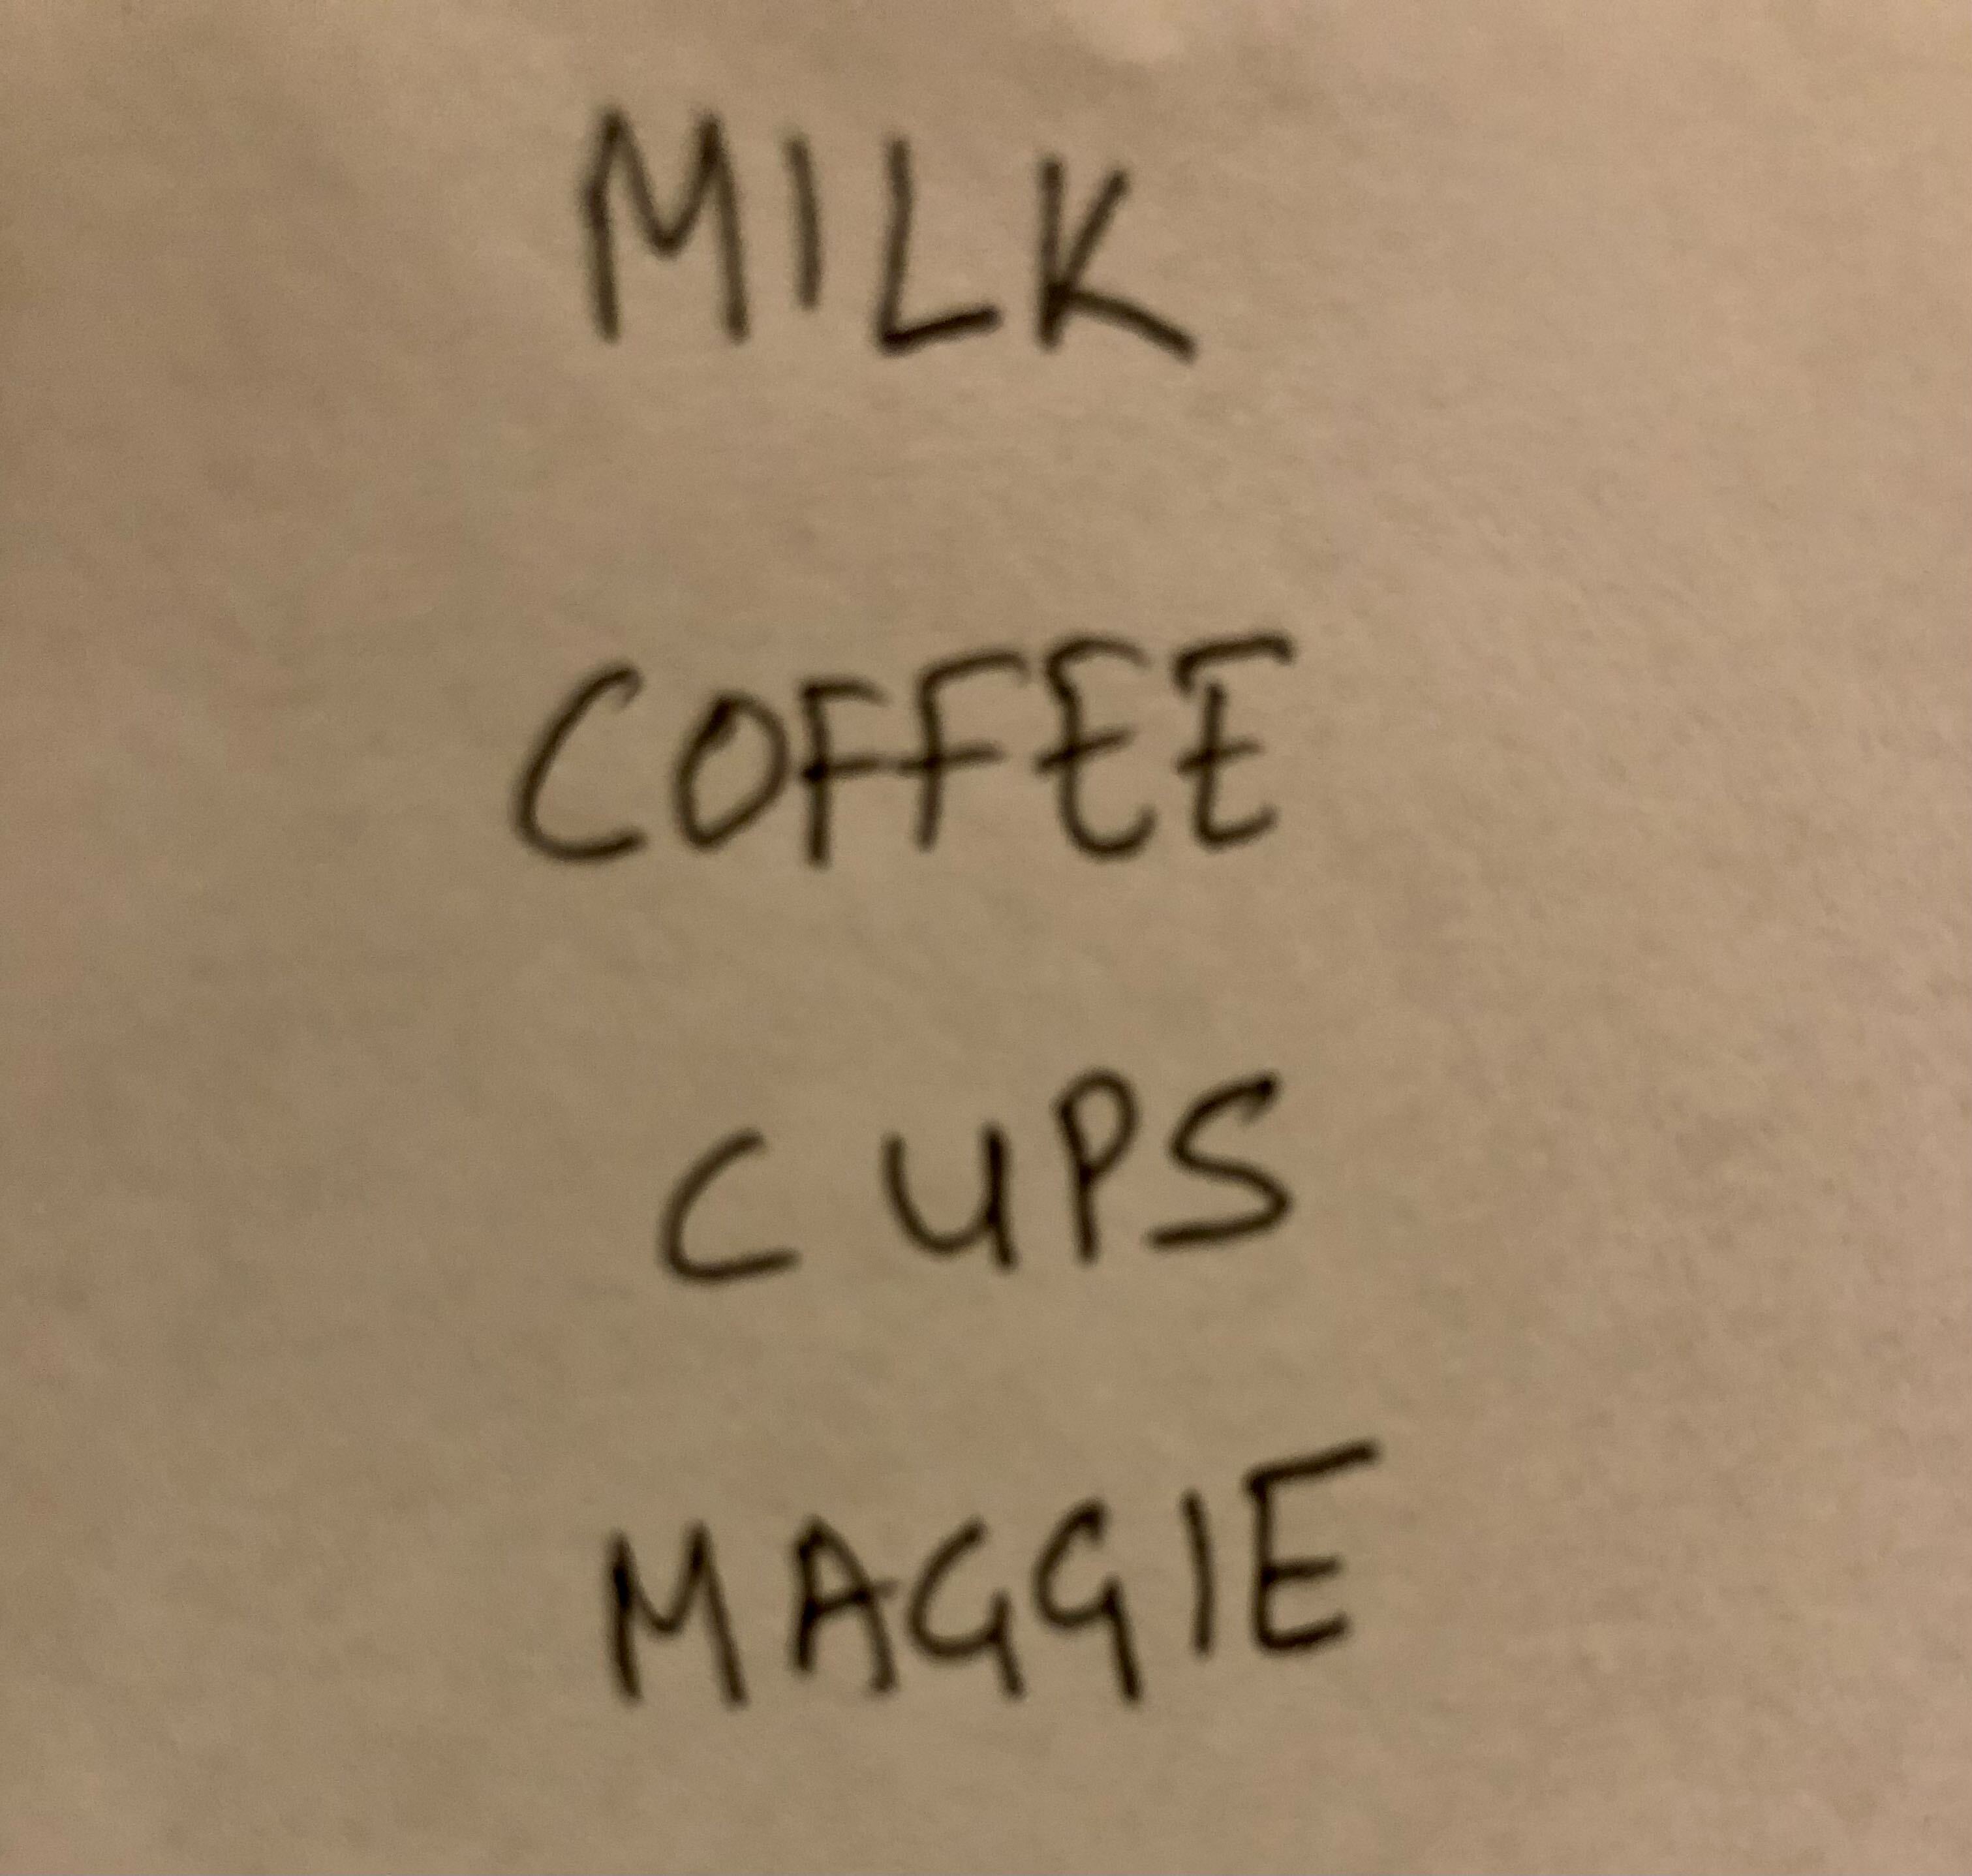 MILK
COFFEE
CUPS
MAGGIE